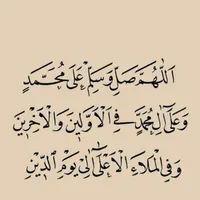 اَللّٰهُمَّ صَلِّ وَسَلِّمْ عَلَى مُحَمَّدٍ
وَعَلَى آلِ مُحَمَّدٍ فِي الْاَوَّلِينَ وَالْاٰخِرِينَ
وَفِي الْمَلَاءِ الْاَعْلَى اِلَى يَوْمِ الدِّينِ